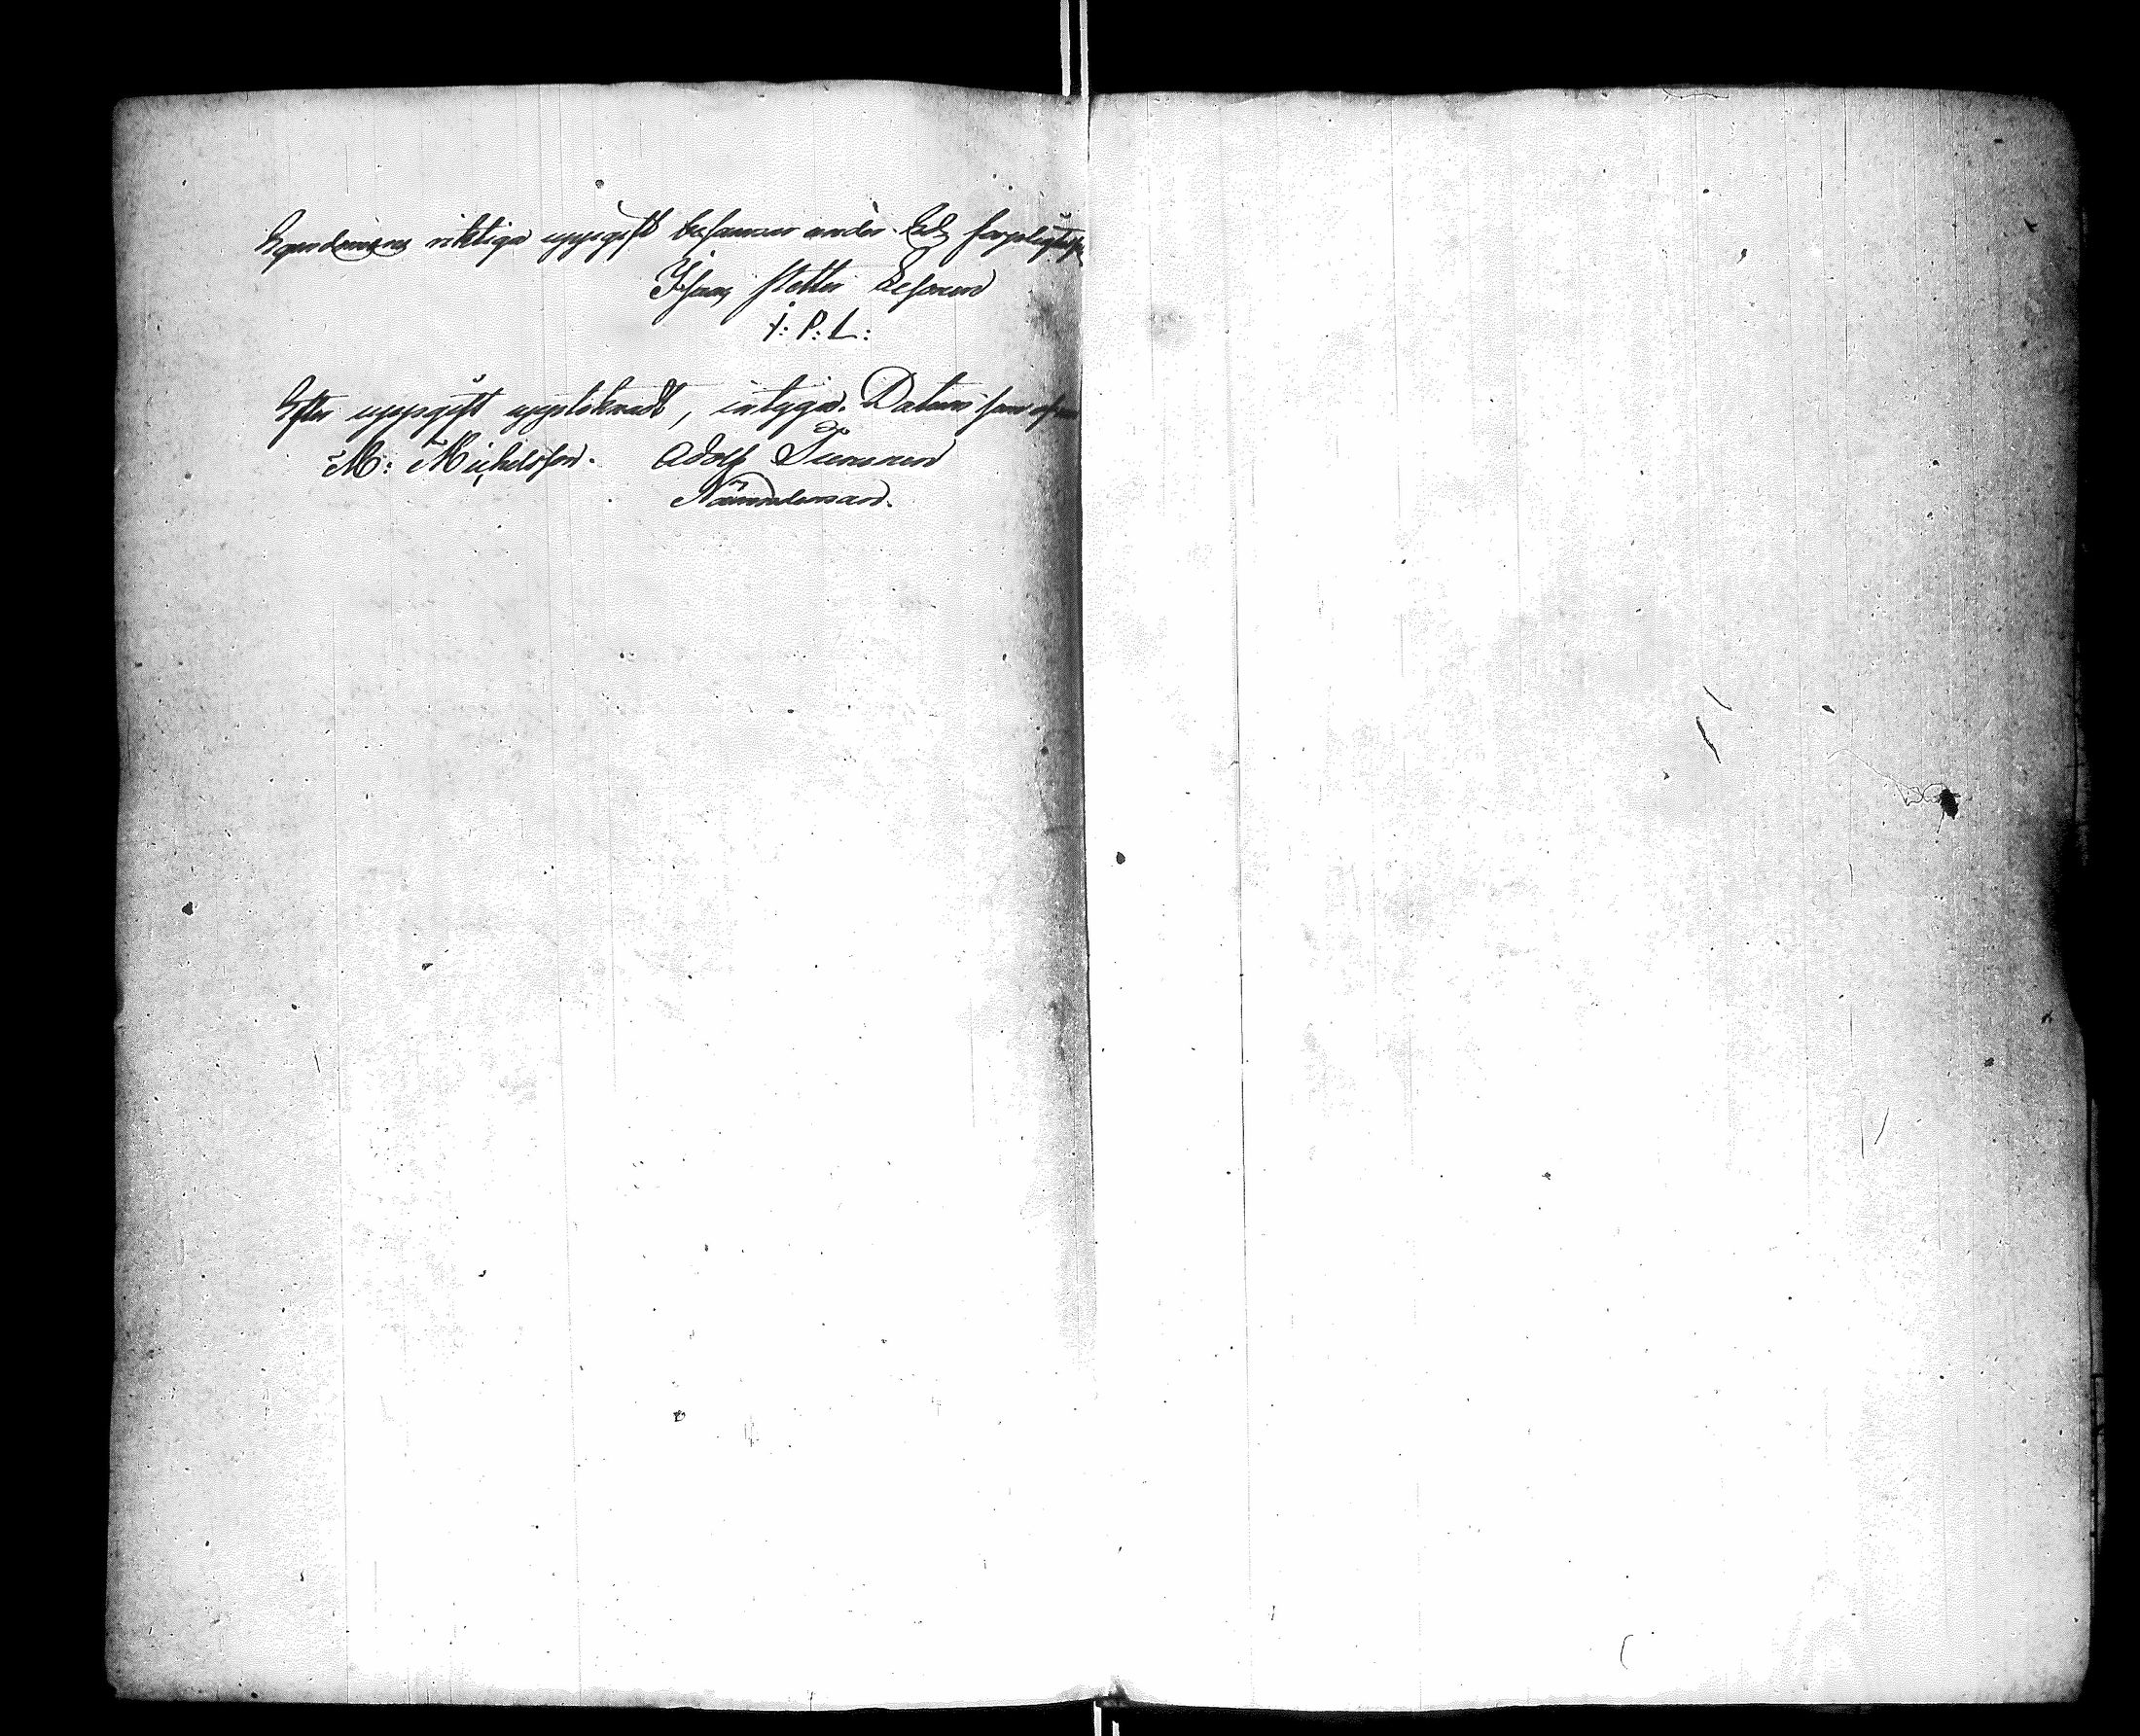 Egendomens riktiga uppgift besannar under Eds förpligtelse
Isaac Petter
I: P: L:
Efter uppgift uppteknadt, intyga. Datum som ofvan
M: Michelsson. Adolf Turonen
Nämndeman.